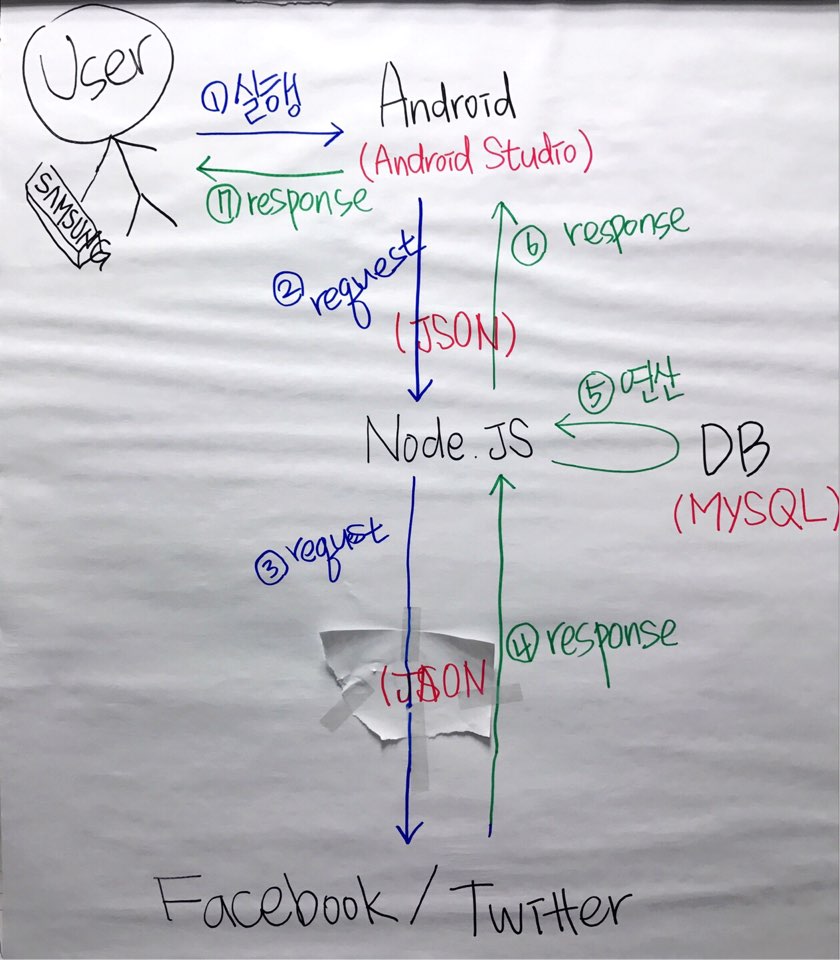 User
SAMSUNG
① 실행
Android
(Android Studio)
⑦ response
② request
⑥ response
(JSON)
⑤ 연산
Node.JS
DB
(MYSQL)
③ request
④ response
(JSON
Facebook / Twitter